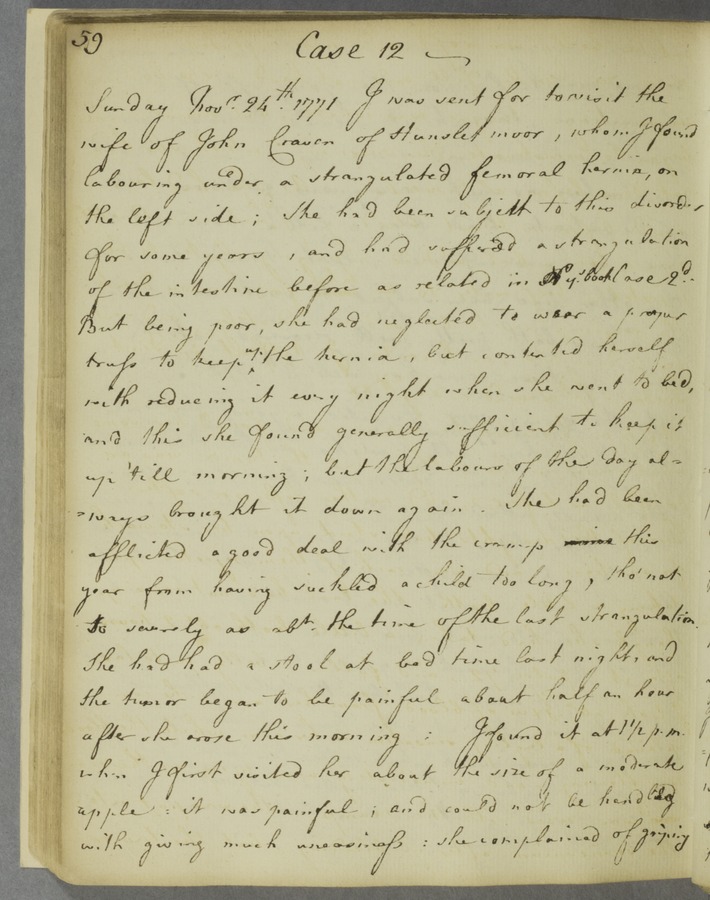 59
Case 12
Sunday Novr. 24th. 1771 I was sent for to visit the
wife of John Craven of Hunslet moor, whom I found
labouring under a strangulated femoral hernia, on
the left side; She had been subject to this disorder
for some years, and had suffered a strangulation
of the intestine before as related in ys. book Case 2d.
But being poor, she had neglected to wear a proper
truss to keep up the hernia, but contented herself
with reducing it every night when she went to bed,
and this she found generally sufficient to keep it
up 'till morning; but the labours of the day al=
=ways brought it down again. She had been
afflicted a good deal with the cramp this
year from having suckled a child too long, tho' not
so severely as abt. the time of the last strangulation.
She had had a stool at bed time last night, and
the tumor began to be painful about half an hour
after she arose this morning: I found it at 1 1/2 p.m.
when I first visited her about the size of a moderate
apple: it was painful; and could not be handled
with giving much uneasiness: she complained of griping